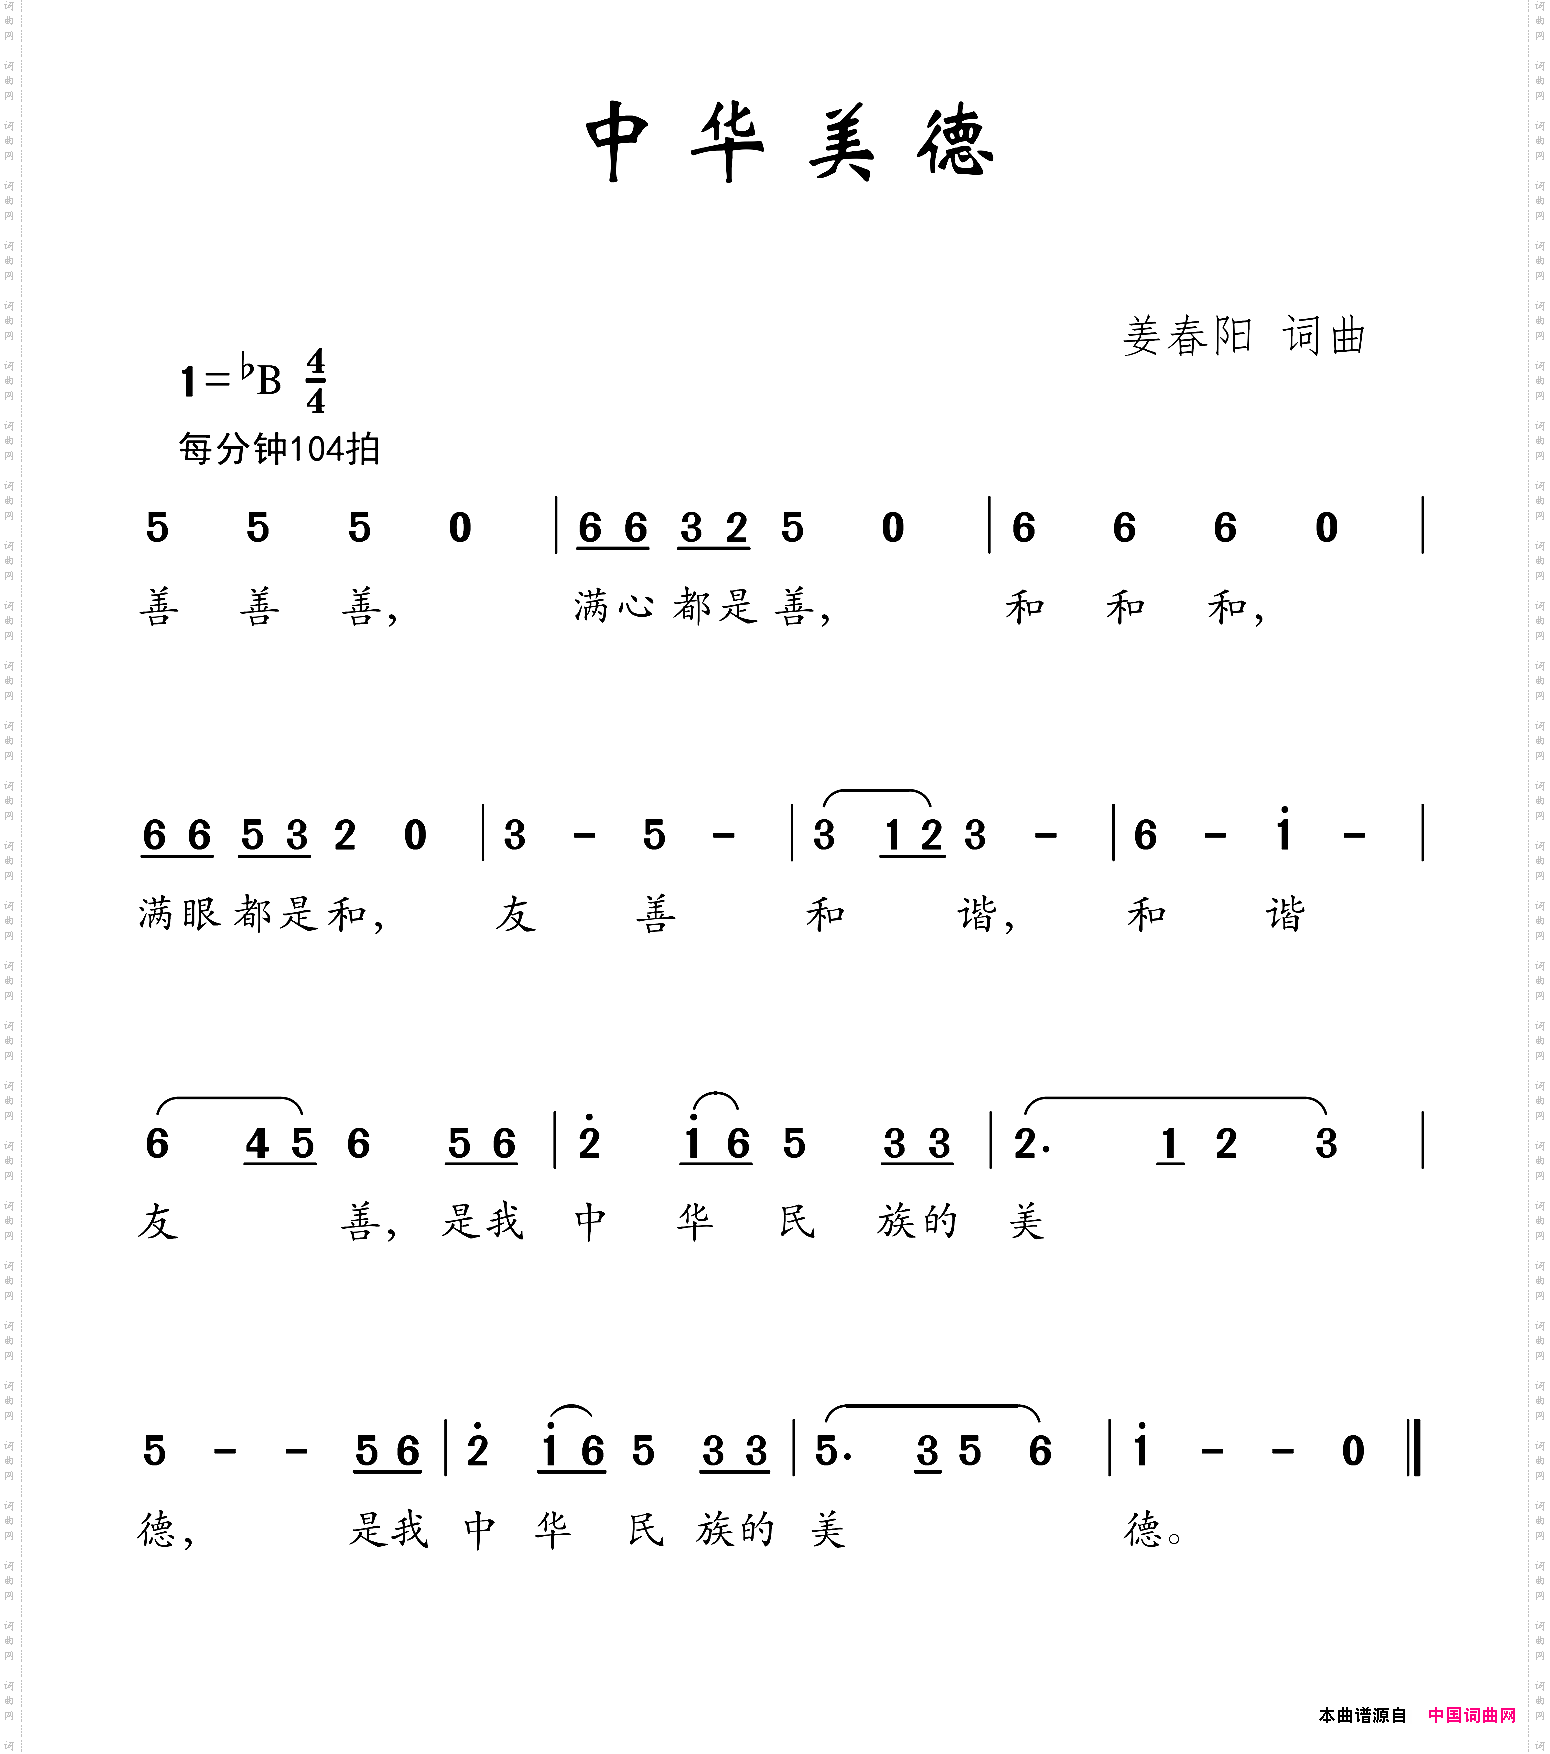 中华美德
姜春阳 词曲
1=♭B 4/4
每分钟104拍
5 5 5 0 | 6 6 3 2 5 0 | 6 6 6 0 |
善 善 善, 满心都是善, 和 和 和,
6 6 5 3 2 0 | 3 - 5 - | 3 1 2 3 - | 6 - i - |
满眼都是和, 友 善 和 谐, 和 谐
6 4 5 6 5 6 | 2̇ i 6 5 3 3 | 2. 1 2 3 |
友 善, 是我 中 华 民 族的 美
5 - - 5 6 | 2̇ i 6 5 3 3 | 5. 3 5 6 | i - - 0 ‖
德, 是我 中 华 民 族的 美 德。
本曲谱源自 中国词曲网